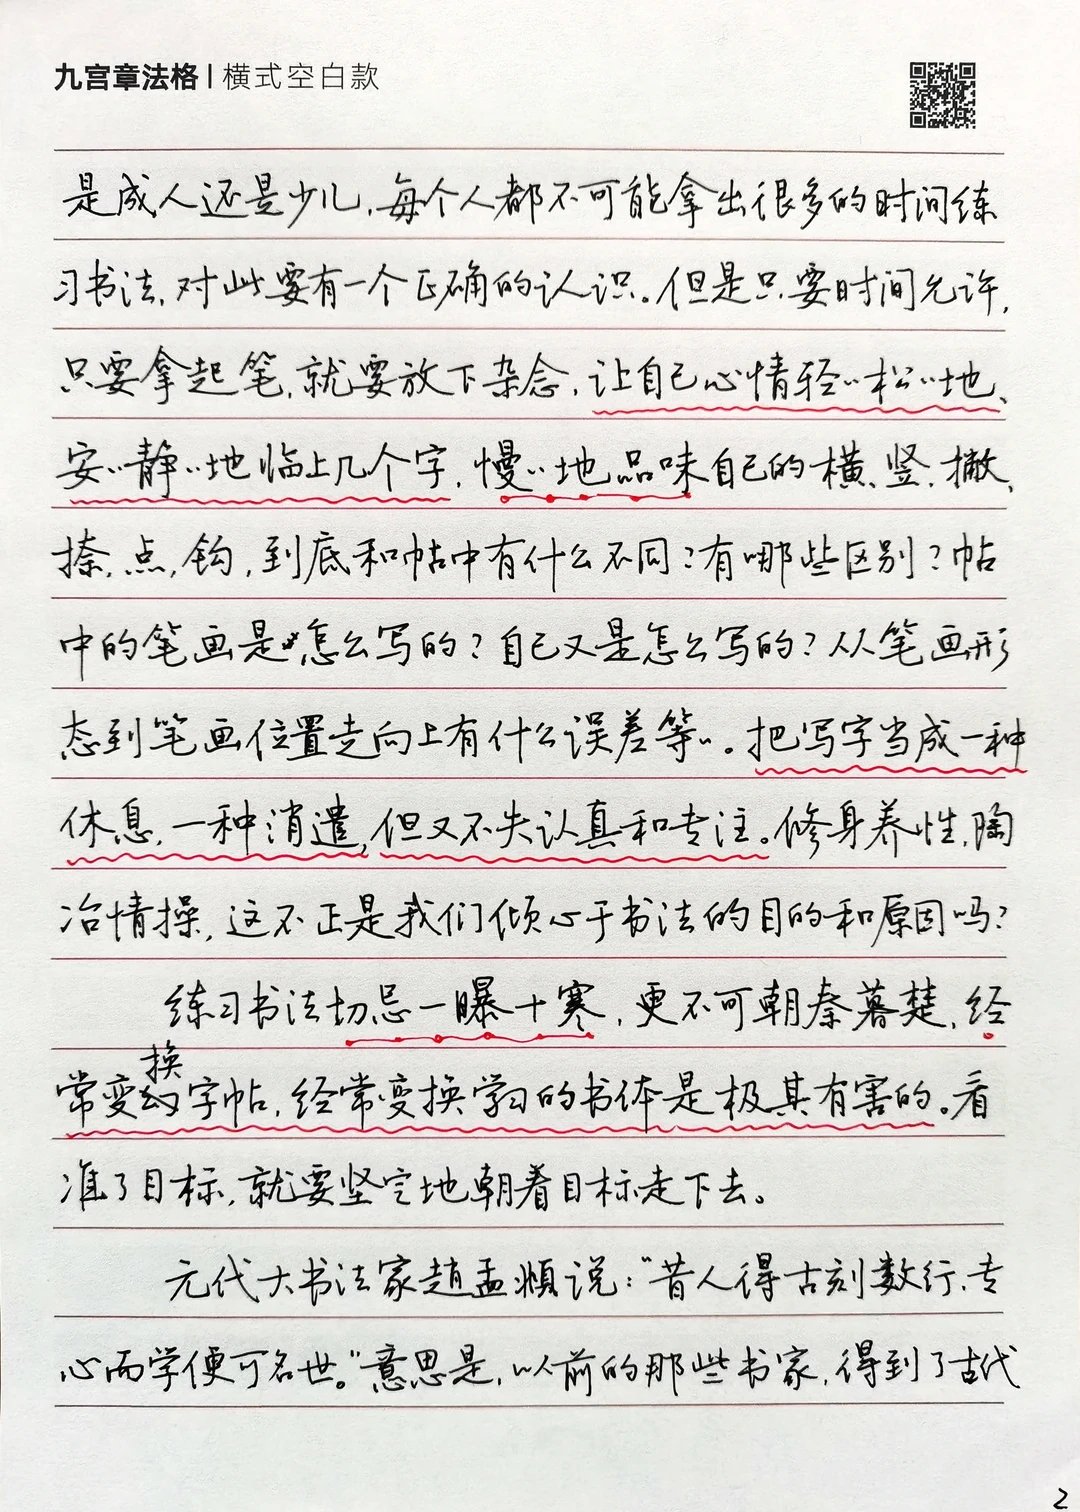 九宫章法格 | 横式空白款
是成人还是少儿,每个人都不可能拿出很多的时间练
习书法,对此要有一个正确的认识。但是只要时间允许,
只要拿起笔,就要放下杂念,让自己心情轻〃松〃地、
安〃静〃地临上几个字,慢〃地品味自己的横、竖、撇、
捺、点、钩,到底和帖中有什么不同?有哪些区别?帖
中的笔画是怎么写的?自己又是怎么写的?从笔画形
态到笔画位置走向上有什么误差等〃。把写字当成一种
休息,一种消遣,但又不失认真和专注。修身养性,陶
冶情操,这不正是我们倾心于书法的目的和原因吗?
练习书法切忌一曝十寒,更不可朝秦暮楚,经
常变换字帖,经常变换学习的书体是极其有害的。看
准了目标,就要坚定地朝着目标走下去。
元代大书法家赵孟頫说:"昔人得古刻数行,专
心而学便可名世。"意思是,以前的那些书家,得到了古代
2